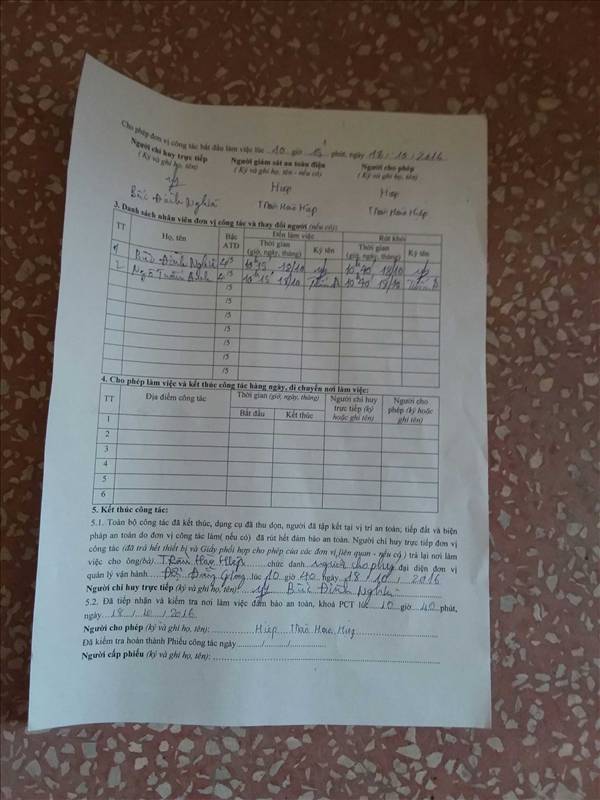 Cho phép đơn vị công tác bắt đầu làm việc lúc 10 giờ 15 phút, ngày 18 / 10 / 2016
Người chỉ huy trực tiếp Người giám sát an toàn điện Người cho phép
( Ký và ghi họ, tên) ( Ký và ghi họ, tên - nếu có) ( Ký và ghi họ, tên)
Hiệp Hiệp
Bùi Đình Nghĩa
3. Danh sách nhân viên đơn vị công tác và thay đổi người (nếu có):
TT Họ, tên Bậc ATĐ Đến làm việc Rút khỏi
Thời gian (giờ, ngày, tháng) Ký tên Thời gian (giờ, ngày, tháng) Ký tên
1 Bùi Đình Nghĩa /5 10h15 18/10 10h40 18/10
2 Ngô Tuấn Anh /5 10h15 18/10 10h40 18/10
/5
/5
/5
/5
/5
/5
/5
4. Cho phép làm việc và kết thúc công tác hàng ngày, di chuyển nơi làm việc:
TT Địa điểm công tác Thời gian (giờ, ngày, tháng) Người chỉ huy trực tiếp (ký hoặc ghi tên) Người cho phép (ký hoặc ghi tên)
Bắt đầu Kết thúc
1
2
3
4
5
6
5. Kết thúc công tác:
5.1. Toàn bộ công tác đã kết thúc, dụng cụ đã thu dọn, người đã tập kết tại vị trí an toàn; tiếp đất và biện
pháp an toàn do đơn vị công tác làm( nếu có) đã rút hết đảm bảo an toàn. Người chỉ huy trực tiếp đơn vị
công tác (đã trả hết thiết bị và Giấy phối hợp cho phép của các đơn vị liên quan - nếu có ) trả lại nơi làm
việc cho ông(bà) chức danh người cho phép đại diện đơn vị
quản lý vận hành lúc 10 giờ 40 ngày 18 / 10 / 2016
Người chỉ huy trực tiếp (ký và ghi họ, tên): Bùi Đình Nghĩa
5.2. Đã tiếp nhận và kiểm tra nơi làm việc đảm bảo an toàn, khoá PCT lúc 10 giờ 40 phút,
ngày 18 / 10 / 2016
Người cho phép (ký và ghi họ, tên): Hiệp
Đã kiểm tra hoàn thành Phiếu công tác ngày / /
Người cấp phiếu (ký và ghi họ, tên):